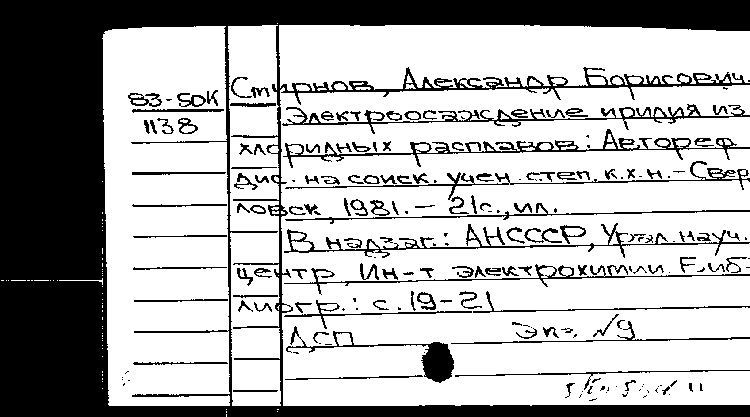 Смирнов, Александр Борисович.
83-50К
1138
Электроосаждение иридия из
хлоридных расплавов: Автореф
дис. на соиск. учен. степ. к.х.н. - Свер
ловск, 1981. - 21с., ил.
В надзаг.: АНСССР, Урал. науч.
центр, Ин-т электрохимии. Биб-
лиогр.: с. 19-21
ДСП Экз. №9